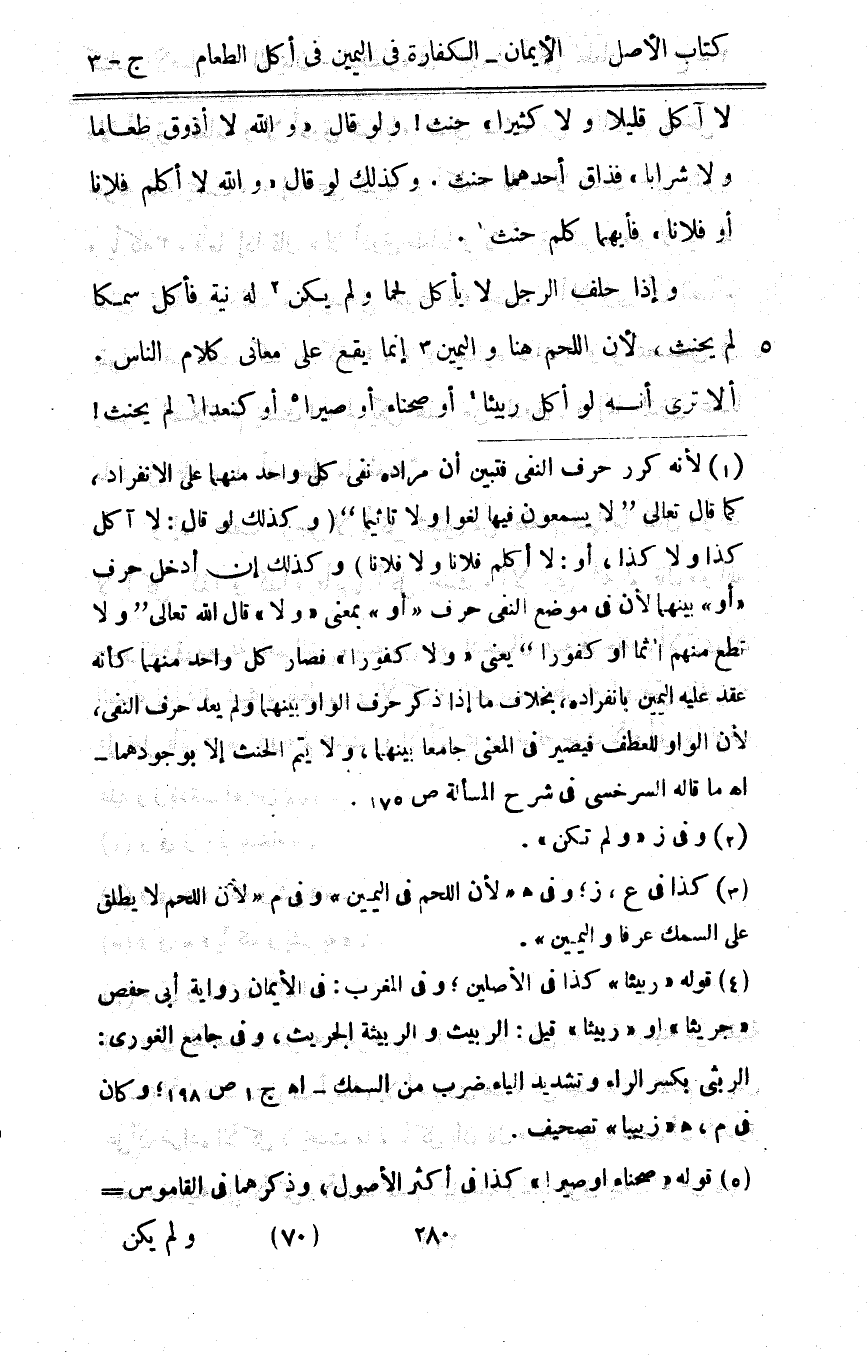 كتاب الأصل الأيمان – الكفارة فى اليمين فى أكل الطعام ج – ٣
لا آكل قليلا و لا كثيرا» حنث! و لو قال «و الله لا أذوق طعاما
و لا شرابا» فذاق أحدهما حنث . وكذلك لو قال «و الله لا أكلم فلانا
أو فلانا» فأيهما كلم حنث ١ .
و إذا حلف الرجل لا يأكل لحما و لم يكن ٢ له نية فأكل سمكا
٥ لم يحنث، لأن اللحم هنا و اليمين ٣ إنما يقع على معانى كلام الناس .
ألا ترى أنه لو أكل ربيثا ٤ أو صحناه أو صيرا ٥ أو كنعدا ٦ لم يحنث!
(١) لأنه كرر حرف النفى فتبين أن مراده نفى كل واحد منهما على الانفراد،
كما قال تعالى ”لا يسمعون فيها لغوا و لا تاثيما“ (و كذلك لو قال: لا آكل
كذا و لا كذا، أو: لا أكلم فلانا و لا فلانا) و كذلك إن أدخل حرف
«أو» بينهما لأن فى موضع النفى حرف «أو» بمعنى «و لا» قال الله تعالى ”و لا
تطع منهم اٰثما او كفورا“ يعنى «و لا كفورا» فصار كل واحد منهما كأنه
عقد عليه اليمين بانفراده، بخلاف ما إذا ذكر حرف الواو بينهما و لم يعد حرف النفى،
لأن الواو للعطف فيصير فى المعنى جامعا بينهما، و لا يتم الحنث إلا بوجودهما –
اه ما قاله السرخسى فى شرح المسألة ص ١٧٥ .
(٢) و فى ز «و لم تكن» .
(٣) كذا فى ع، ز؛ و فى ه «لأن اللحم فى اليمين» و فى م «لأن اللحم لا يطلق
على السمك عرفا و اليمين» .
(٤) قوله «ربيثا» كذا فى الأصلين؛ و فى المغرب: فى الأيمان رواية أبى حفص
«جريثا» او «ربيثا» قيل: الربيث و الربيثة الجريث، و فى جامع الغورى:
الربثى بكسر الراء و تشديد الياء ضرب من السمك – اه ج ١ ص ١٩٨؛ و كان
فى م، ه «زبيبا» تصحيف .
(٥) قوله «صحناه او صيرا» كذا فى أكثر الأصول، و ذكرهما فى القاموس =
٢٨٠ (٧٠) و لم يكن